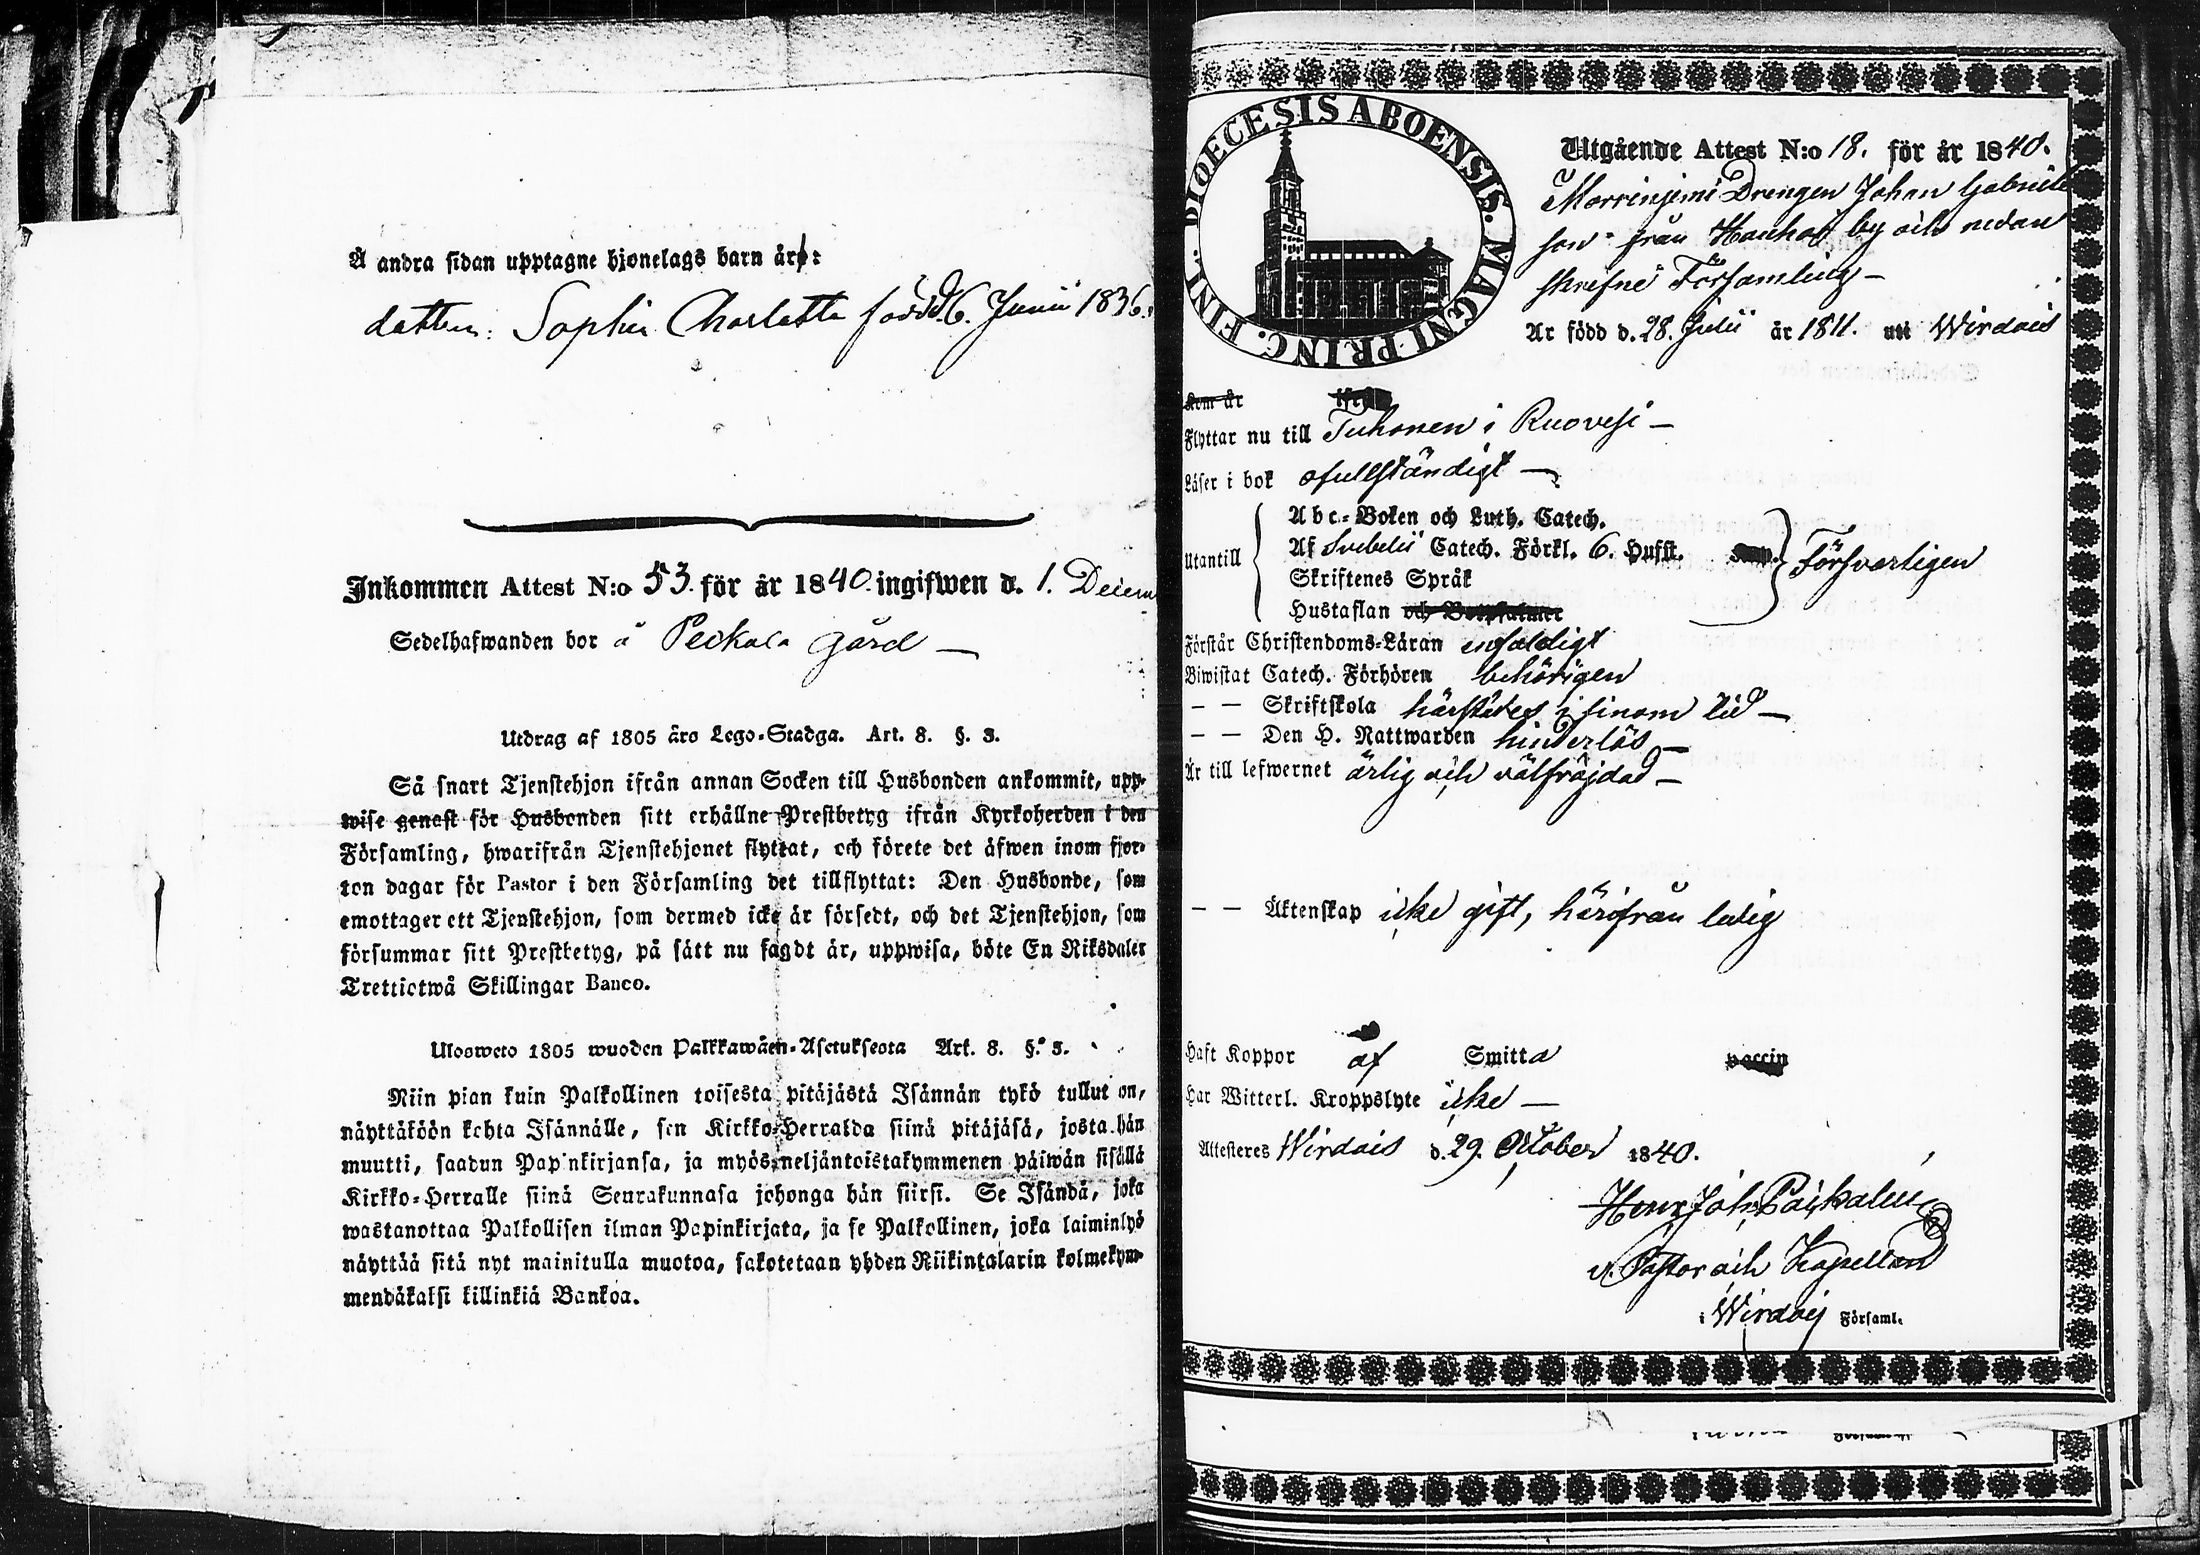 Å andra sidan upptagne hjonelags barn äro:
dottren: Sophia Charlotta född d. 6. Junii 1836.
Inkommen Attest N:o 53. för år 1840. ingifwen d. 1. Decem
Sedelhafwanden bor å Peckala gård —
Utdrag af 1805 års Lego-Stadga. Art. 8. §. 3.
Så snart Tjenstehjon ifrån annan Socken till Husbonden ankommit, upp-
wise genast för Husbonden sitt erhållne Prestbetyg ifrån Kyrkoherden i den
Församling, hwarifrån Tjenstehjonet flyttat, och förete det äfwen inom fjor-
ton dagar för Pastor i den Församling det tillflyttat: Den Husbonde, som
emottager ett Tjenstehjon, som dermed icke är försedt, och det Tjenstehjon, som
försummar sitt Prestbetyg, på sätt nu sagdt är, uppwisa, böte En Riksdaler
Trettiotwå Skillingar Banco.
Ulosweto 1805 wuoden Palkkawäen-Asetuksesta Art. 8. §. 3.
Niin pian kuin Palkollinen toisesta pitäjästä Isännän tykö tullut on,
näyttäköön kohta Isännälle, sen Kirkko-Herralda siinä pitäjäsä, josta hän
muutti, saadun Papinkirjansa, ja myös neljäntoistakymmenen päiwän sisällä
Kirkko-Herralle siinä Seurakunnasa johonga hän siirsi. Se Isändä, joka
wastanottaa Palkollisen ilman Papinkirjata, ja se Palkollinen, joka laiminlyö
näyttää sitä nyt mainitulla muotoa, sakotetaan yhden Riikintalarin kolmekym-
mendäkaksi killinkiä Bankoa.
DIOECESIS ABOENSIS. MAGNI PRINC. FINL.
Utgående Attest N:o 18. för år 1840.
Drengen Johan Gabriels
son från by och nedan
skrefne Församling —
Är född d. 28. Julii år 1811. uti Wirdois
Kom år ifrån
Flyttar nu till Tuhonen i Ruovesi —
Läser i bok ofullständigt —
Abc-Boken och Luth. Catech.
Utantill Af Svebelii Catech. Förkl. 6. Hufst. Försvarligen
Skriftenes Språk
Hustaflan och Botpsalmer
Förstår Christendoms-Läran enfaldigt
Biwistat Catech. Förhören behörigen
— — Skriftskola härstädes i sinom tid —
— — Den H. Nattwarden hinderlös —
Är till lefwernet ärlig och välfräjdad —
— — Äktenskap icke gift, härifrån ledig
Haft Koppor af Smitta vaccin
Har Witterl. Kroppslyte icke —
Attesteres Wirdois d. 29. October 1840.
Henr. Joh.
v. Pastor och Kapellan
i Wirdois Församl.